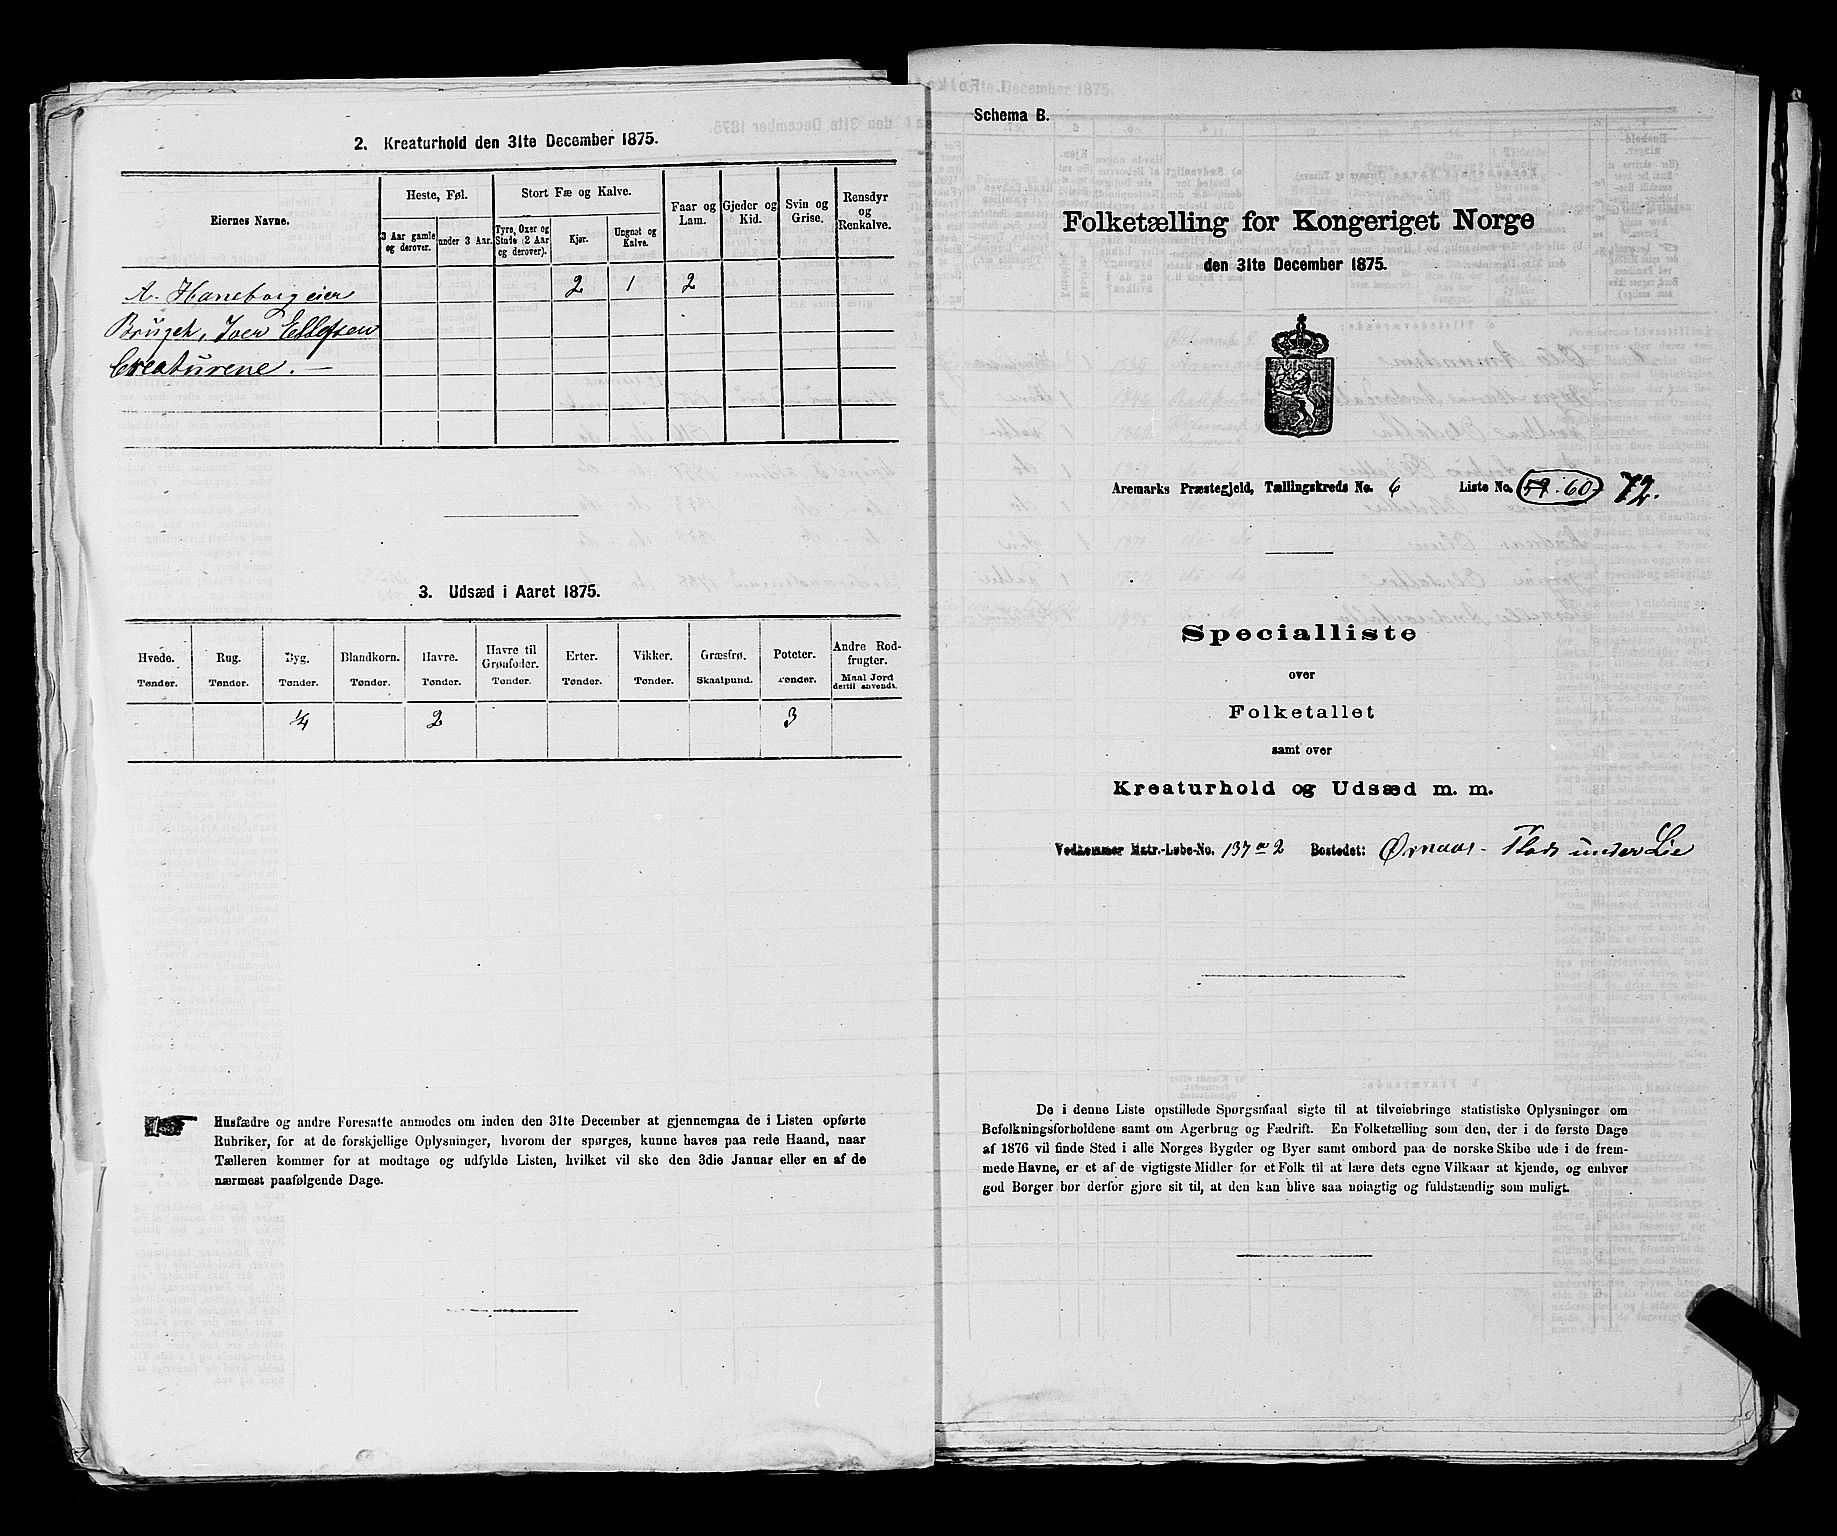 2. Kreaturhold den 31te December 1875.
Eiernes Navne.
Heste, Føl.
Stort Fæ og Kalve.
Faar og Lam.
Gjeder og Kid.
Svin og Grise.
Rensdyr og Renkalve.
3 Aar gamle og derover.
under 3 Aar.
Tyre, Oxer og Stude (2 Aar og derover).
Kjør.
Ungnøt og Kalve.
A. Haneborg eier 2 1 2
Bruget, Iver Ellefsen
Creaturene. —
3. Udsæd i Aaret 1875.
Hvede. Rug. Byg. Blandkorn. Havre. Havre til Grønfoder. Erter. Vikker. Græsfrø. Poteter. Andre Rodfrugter.
Tønder. Tønder. Tønder. Tønder. Tønder. Tønder. Tønder. Tønder. Skaalpund. Tønder. Maal Jord dertil anvendt.
¼ 2 3
Husfædre og andre Foresatte anmodes om inden den 31te December at gjennemgaa de i Listen opførte
Rubriker, for at de forskjellige Oplysninger, hvorom der spørges, kunne haves paa rede Haand, naar
Tælleren kommer for at modtage og udfylde Listen, hvilket vil ske den 3die Januar eller en af de
nærmest paafølgende Dage.
Schema B.
Folketælling for Kongeriget Norge
den 31te December 1875.
Aremarks Præstegjeld, Tællingskreds No. 6 Liste No. 59. 60 72.
Specialliste
over
Folketallet
samt over
Kreaturhold og Udsæd m. m.
Vedkommer Matr.-Løbe-No. 137 a 2 Bostedet: Ørnaas - Plads under Lie
De i denne Liste opstillede Spørgsmaal sigte til at tilveiebringe statistiske Oplysninger om
Befolkningsforholdene samt om Agerbrug og Fædrift. En Folketælling som den, der i de første Dage
af 1876 vil finde Sted i alle Norges Bygder og Byer samt ombord paa de norske Skibe ude i de frem-
mede Havne, er et af de vigtigste Midler for et Folk til at lære dets egne Vilkaar at kjende, og enhver
god Borger bør derfor gjøre sit til, at den kan blive saa nøiagtig og fuldstændig som muligt.